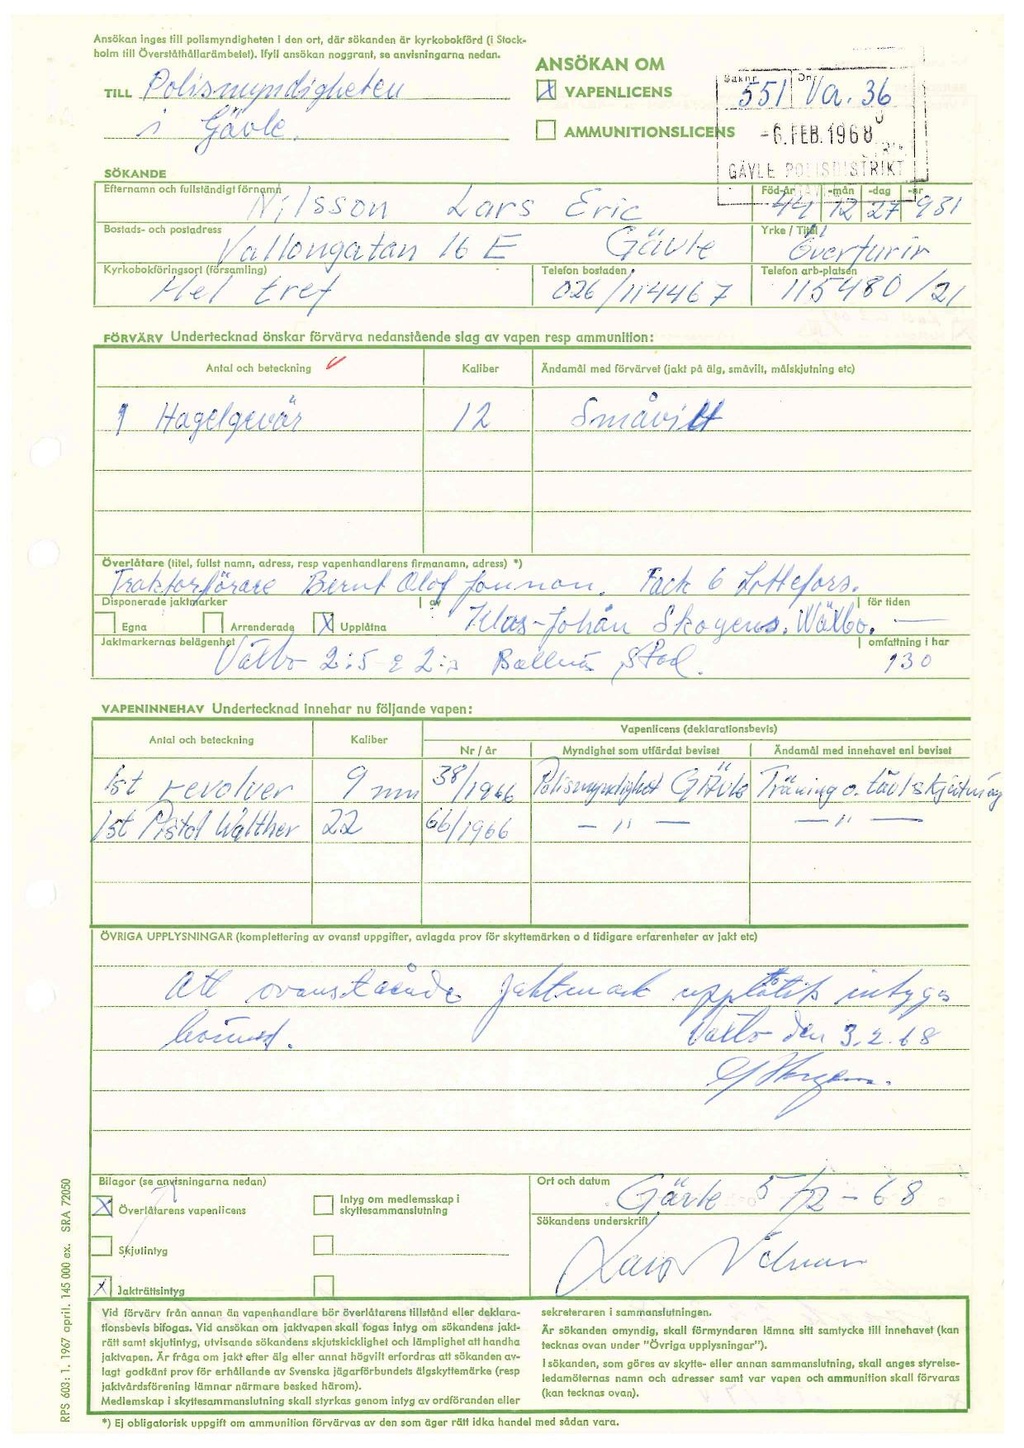 Ansökan inges till polismyndigheten i den ort, där sökanden är kyrkobokförd (i Stock-
holm till Överståthållarämbetet). Ifyll ansökan noggrant, se anvisningarna nedan.
TILL Polismyndigheten
i Gävle.
ANSÖKAN OM
X VAPENLICENS
AMMUNITIONSLICENS
Saknr Dnr
551 Va. 36
-6. FEB. 1968
GÄVLE POLISDISTRIKT
SÖKANDE
Efternamn och fullständigt förnamn
Nilsson Lars Eric
Föd-år -mån -dag -nr
44 12 27 931
Bostads- och postadress
Vallongatan 16 E Gävle
Yrke / Titel
Överfurir
Kyrkobokföringsort (församling)
Hel tref
Telefon bostaden
026/114467
Telefon arb-platsen
115480/21
FÖRVÄRV Undertecknad önskar förvärva nedanstående slag av vapen resp ammunition:
Antal och beteckning Kaliber Ändamål med förvärvet (jakt på älg, småvilt, målskjutning etc)
1 Hagelgevär 12 Småvilt
Överlåtare (titel, fullst namn, adress, resp vapenhandlarens firmanamn, adress) *)
Traktorförare Bernt Olof Jonnon. Fack 6 Lottefors.
Disponerade jaktmarker av för tiden
Egna Arrenderade X Upplåtna Klas-Johan Skogens. Wälbo. —
Jaktmarkernas belägenhet omfattning i har
Valbo 2:5 2:2 130
VAPENINNEHAV Undertecknad innehar nu följande vapen:
Antal och beteckning Kaliber Vapenlicens (deklarationsbevis)
Nr / år Myndighet som utfärdat beviset Ändamål med innehavet enl beviset
1st revolver 9 mm 38/1966 Polismyndighet Gävle Träning o. tävlskjutning
1st Pistol Walther 22 66/1966 — " — — " —
ÖVRIGA UPPLYSNINGAR (komplettering av ovanst uppgifter, avlagda prov för skyttemärken o d tidigare erfarenheter av jakt etc)
Att ovanstående jaktmark upplåtits intygas
härmed. Valbo den 3.2.68
Bilagor (se anvisningarna nedan)
X Överlåtarens vapenlicens
Intyg om medlemsskap i
skyttesammanslutning
Skjutintyg
X Jakträttsintyg
Ort och datum
Gävle 5/2 - 68
Sökandens underskrift
Lars Nilsson
Vid förvärv från annan än vapenhandlare bör överlåtarens tillstånd eller deklara-
tionsbevis bifogas. Vid ansökan om jaktvapen skall fogas intyg om sökandens jakt-
rätt samt skjutintyg, utvisande sökandens skjutskicklighet och lämplighet att handha
jaktvapen. Är fråga om jakt efter älg eller annat högvilt erfordras att sökanden av-
lagt godkänt prov för erhållande av Svenska jägarförbundets älgskyttemärke (resp
jaktvårdsförening lämnar närmare besked härom).
Medlemskap i skyttesammanslutning skall styrkas genom intyg av ordföranden eller
sekreteraren i sammanslutningen.
Är sökanden omyndig, skall förmyndaren lämna sitt samtycke till innehavet (kan
tecknas ovan under "Övriga upplysningar").
I sökanden, som göres av skytte- eller annan sammanslutning, skall anges styrelse-
ledamöternas namn och adresser samt var vapen och ammunition skall förvaras
(kan tecknas ovan).
*) Ej obligatorisk uppgift om ammunition förvärvas av den som äger rätt idka handel med sådan vara.
RPS 603: 1. 1967 april. 145 000 ex. SRA 72050